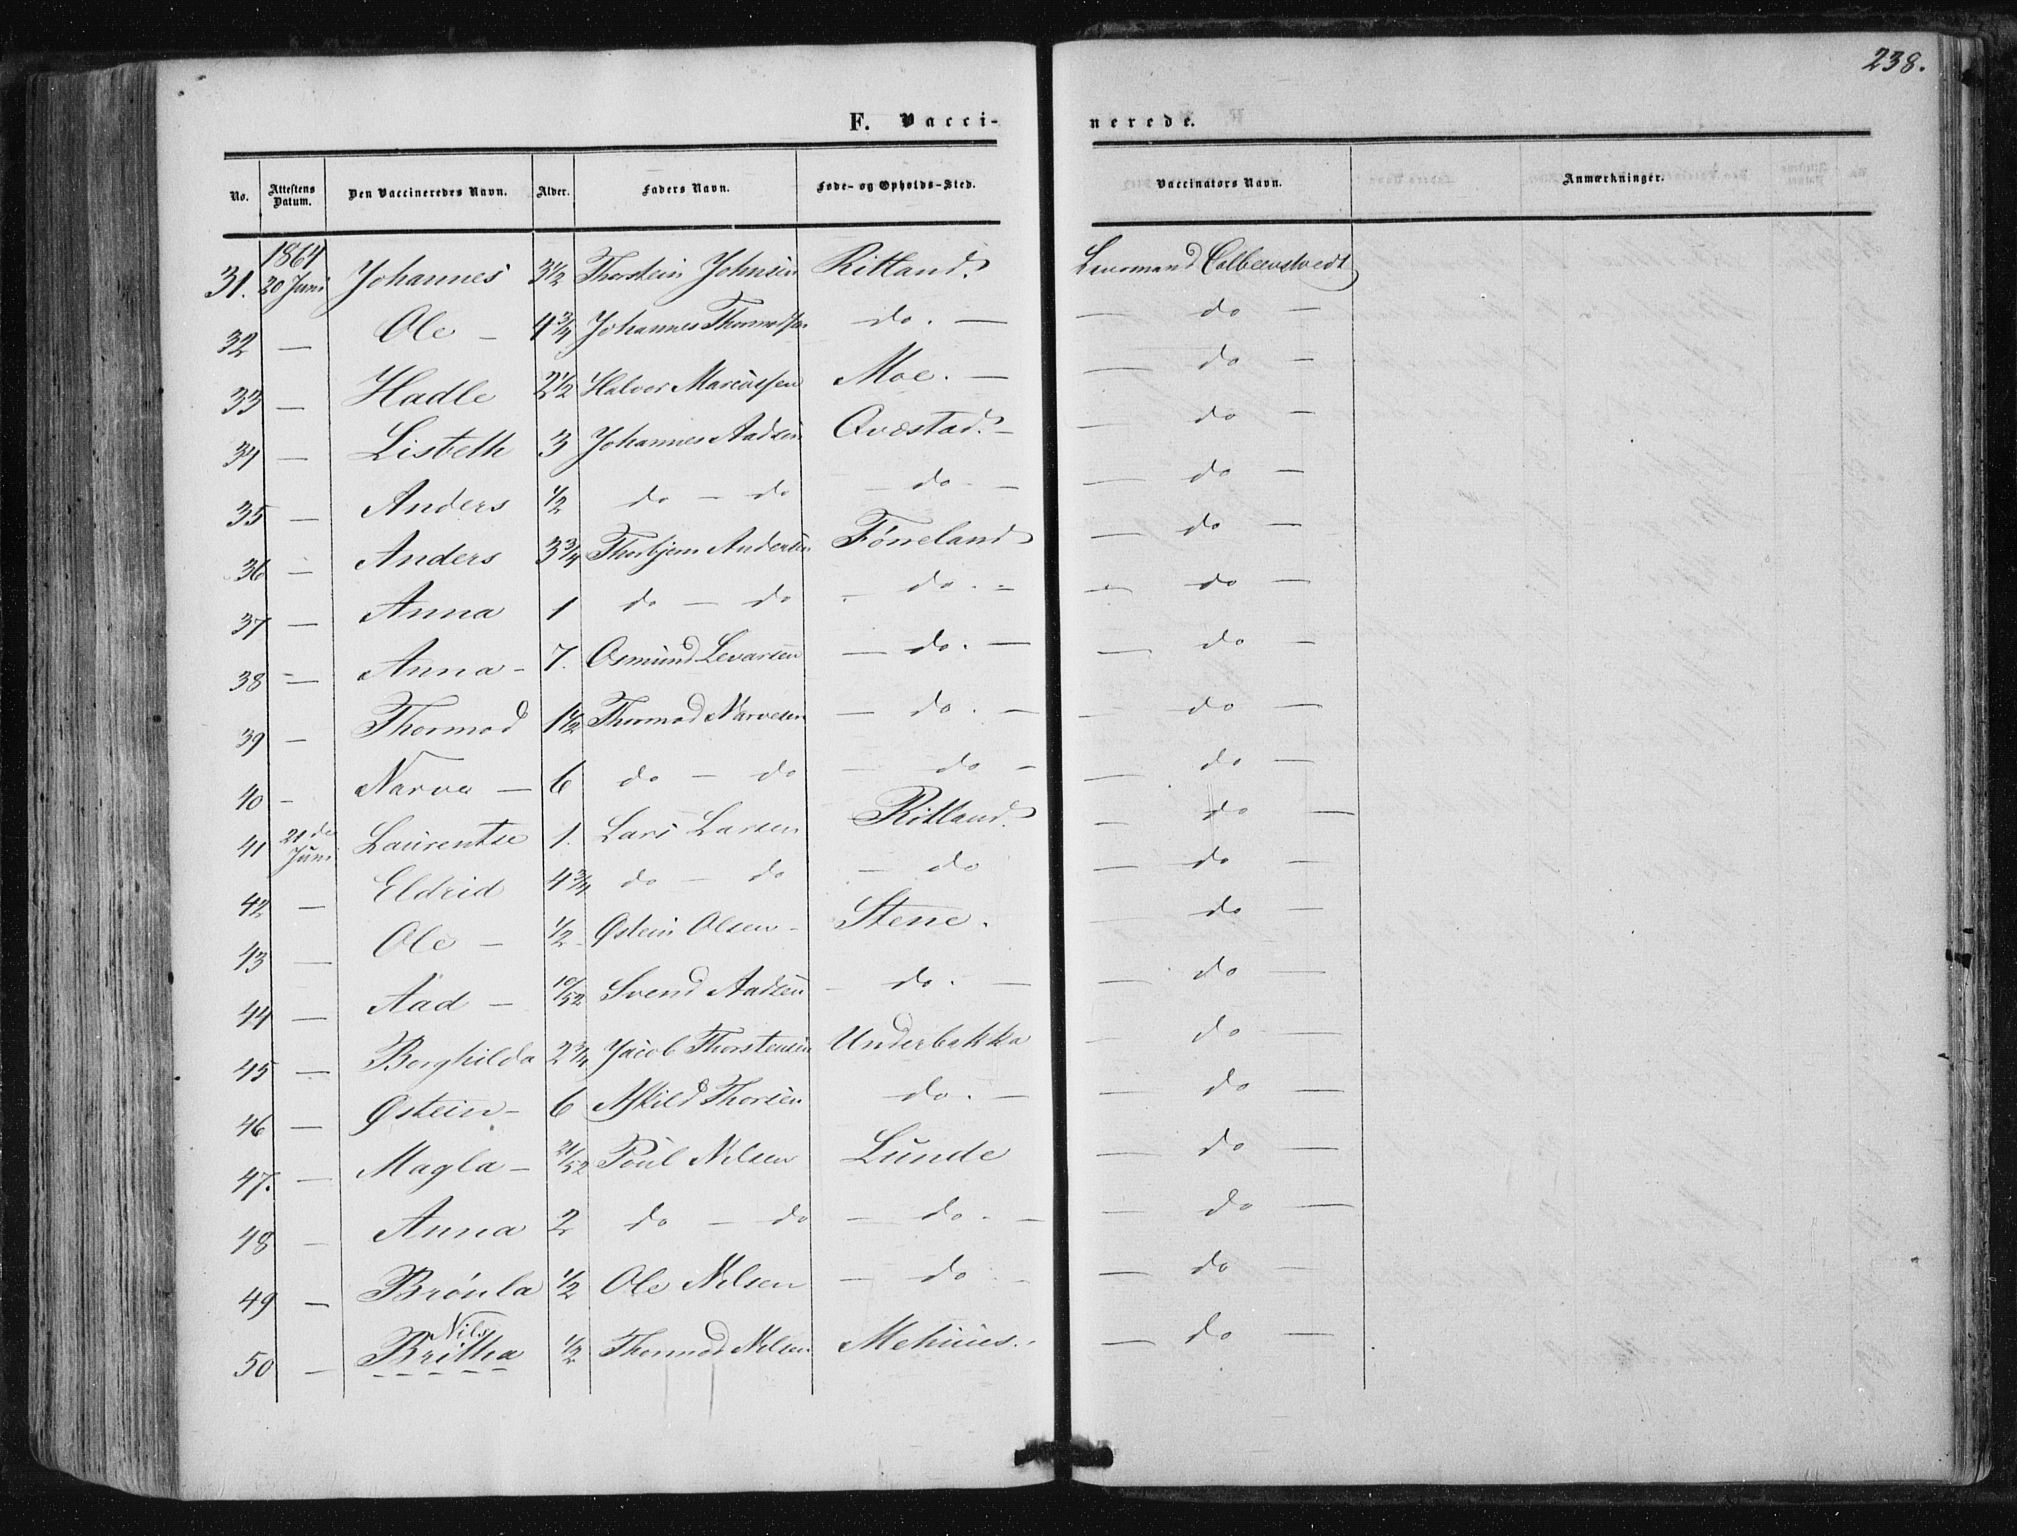 238.
F. Vacci-nerede.
No. Attestens Datum. Den Vaccineredes Navn. Alder. Faders Navn. Føde- og Opholds-Sted. Vaccinators Navn. Anmærkninger.
1864
31. 20 Juni Johannes 3 1/2 Thorstein Johnsen Ritland. Lensmand
32 — Ole — 4 3/4 Johannes Thormodsen do. — — do —
33 — Hadle 2 1/2 Halvor Marcussen Moe. — — do —
34 — Lisbeth 3 Johannes Aadsen Qvæstad. — — do —
35 — Anders 1/2 do — do — do — — do —
36 — Anders 3 3/4 Thorbjørn Andersen Tøneland — do —
37 — Anna 1 do — do — do. — — do —
38 — Anna — 7. Osmund Levarsen — do. — — do —
39 — Thormod 1 1/2 Thormod Narvesen — do. — — do —
40 — Narve — 6 do — do — do — — do —
41 21de Juni Laurentse 1. Lars Larsen Ritland. — do —
42 — Eldrid 4 3/4 do — do — do — do —
43 — Ole — 1/2 Østein Olsen — Stene. — do —
44 — Aad — 10/52 Svend Aadsen — do. — — do —
45 — Borghilda 2 3/4 Jacob Thorstensen Underbakka — do —
46 — Østein — 6 Askild Thorsen do. — — do —
47. — Magla — 21/52 Poul Nilsen Lunde — do —
48 — Anna 2 do — do — do. — — do —
49 — Brønla 1/2 Ole Nilsen — do — — do —
Nils
50 — Britha 1/2 Thormod Nilsen — do —